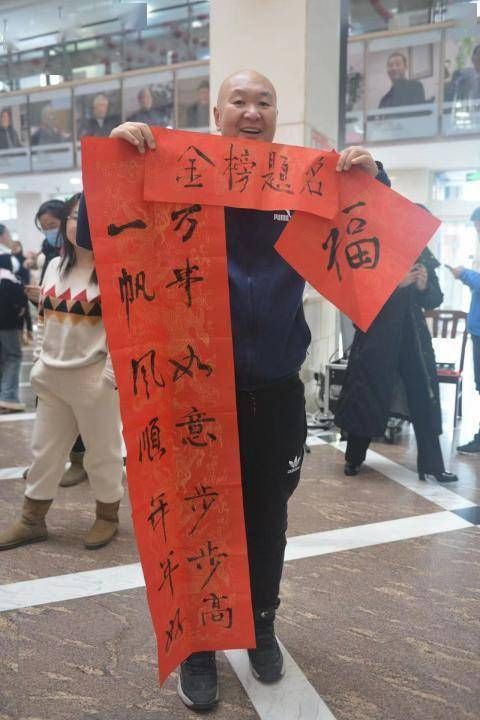 金榜题名
福
一帆风顺年年好
万事如意步步高
PUMA
adidas